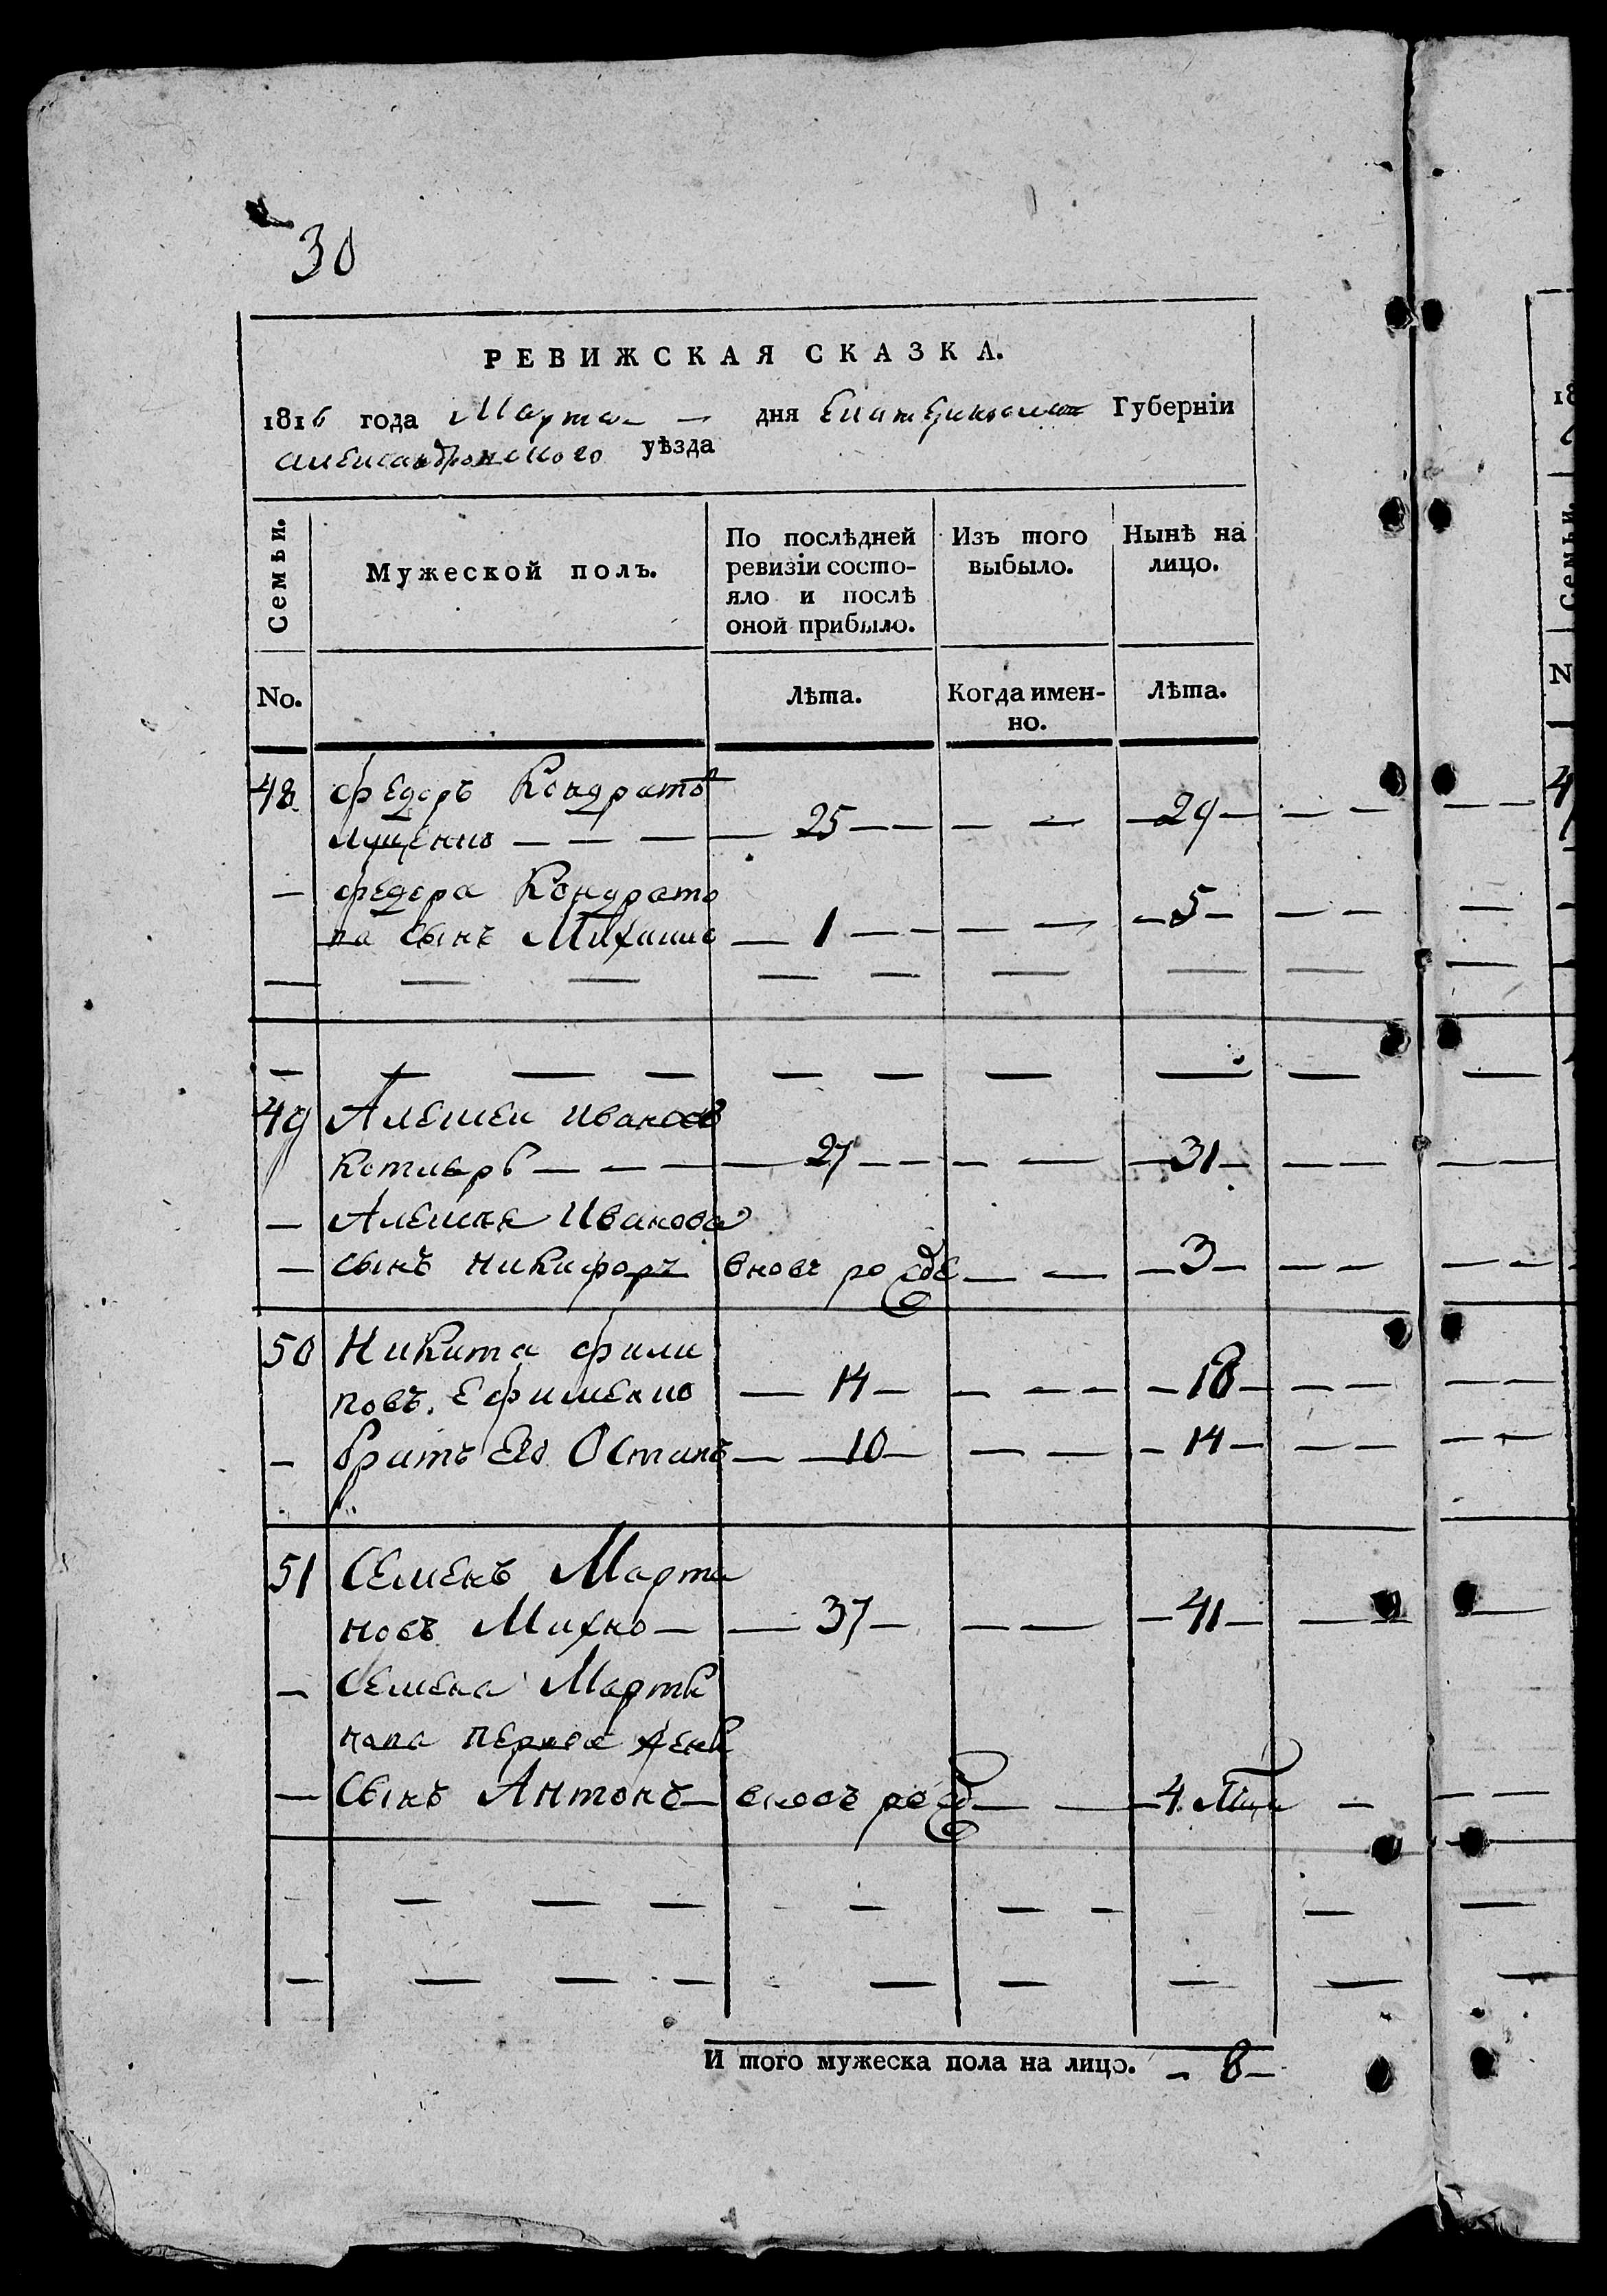 30
РЕВИЖСКАЯ СКАЗКА.
1816 года Марта — дня Екатеринослав Губерніи
Александровского уѣзда
Семьи.
Мужеской полъ.
По послѣдней ревизіи состо-
яло и послѣ
оной прибыло.
Изъ того
выбыло.
Нынѣ на
лицо.
No.
Лѣта.
Когда имен-
но.
Лѣта.
48 Федоръ Кондратов
— — — 25 — — — — — 29 — — —
— Федора Кондрато
ва сынъ Михаило — 1 — — — — — 5 — — —
49 Алексей Иванов
Котляръ — — — 27 — — — — — 31 — — —
— Алексея Иванова
— сынъ Никифоръ вновь рожде — — — 3 — — —
50 Никита Фили
повъ Ефименко — 14 — — — — — 18 — — —
— братъ Его Остапъ — 10 — — — — 14 — — —
51 Семенъ Марти
новъ Михно — — 37 — — — — 41 — — —
— Семена Марты
нова первой жены
— Сынъ Антонъ — вновь рожд — — — 4 —
И того мужеска пола на лицо. — 8 —